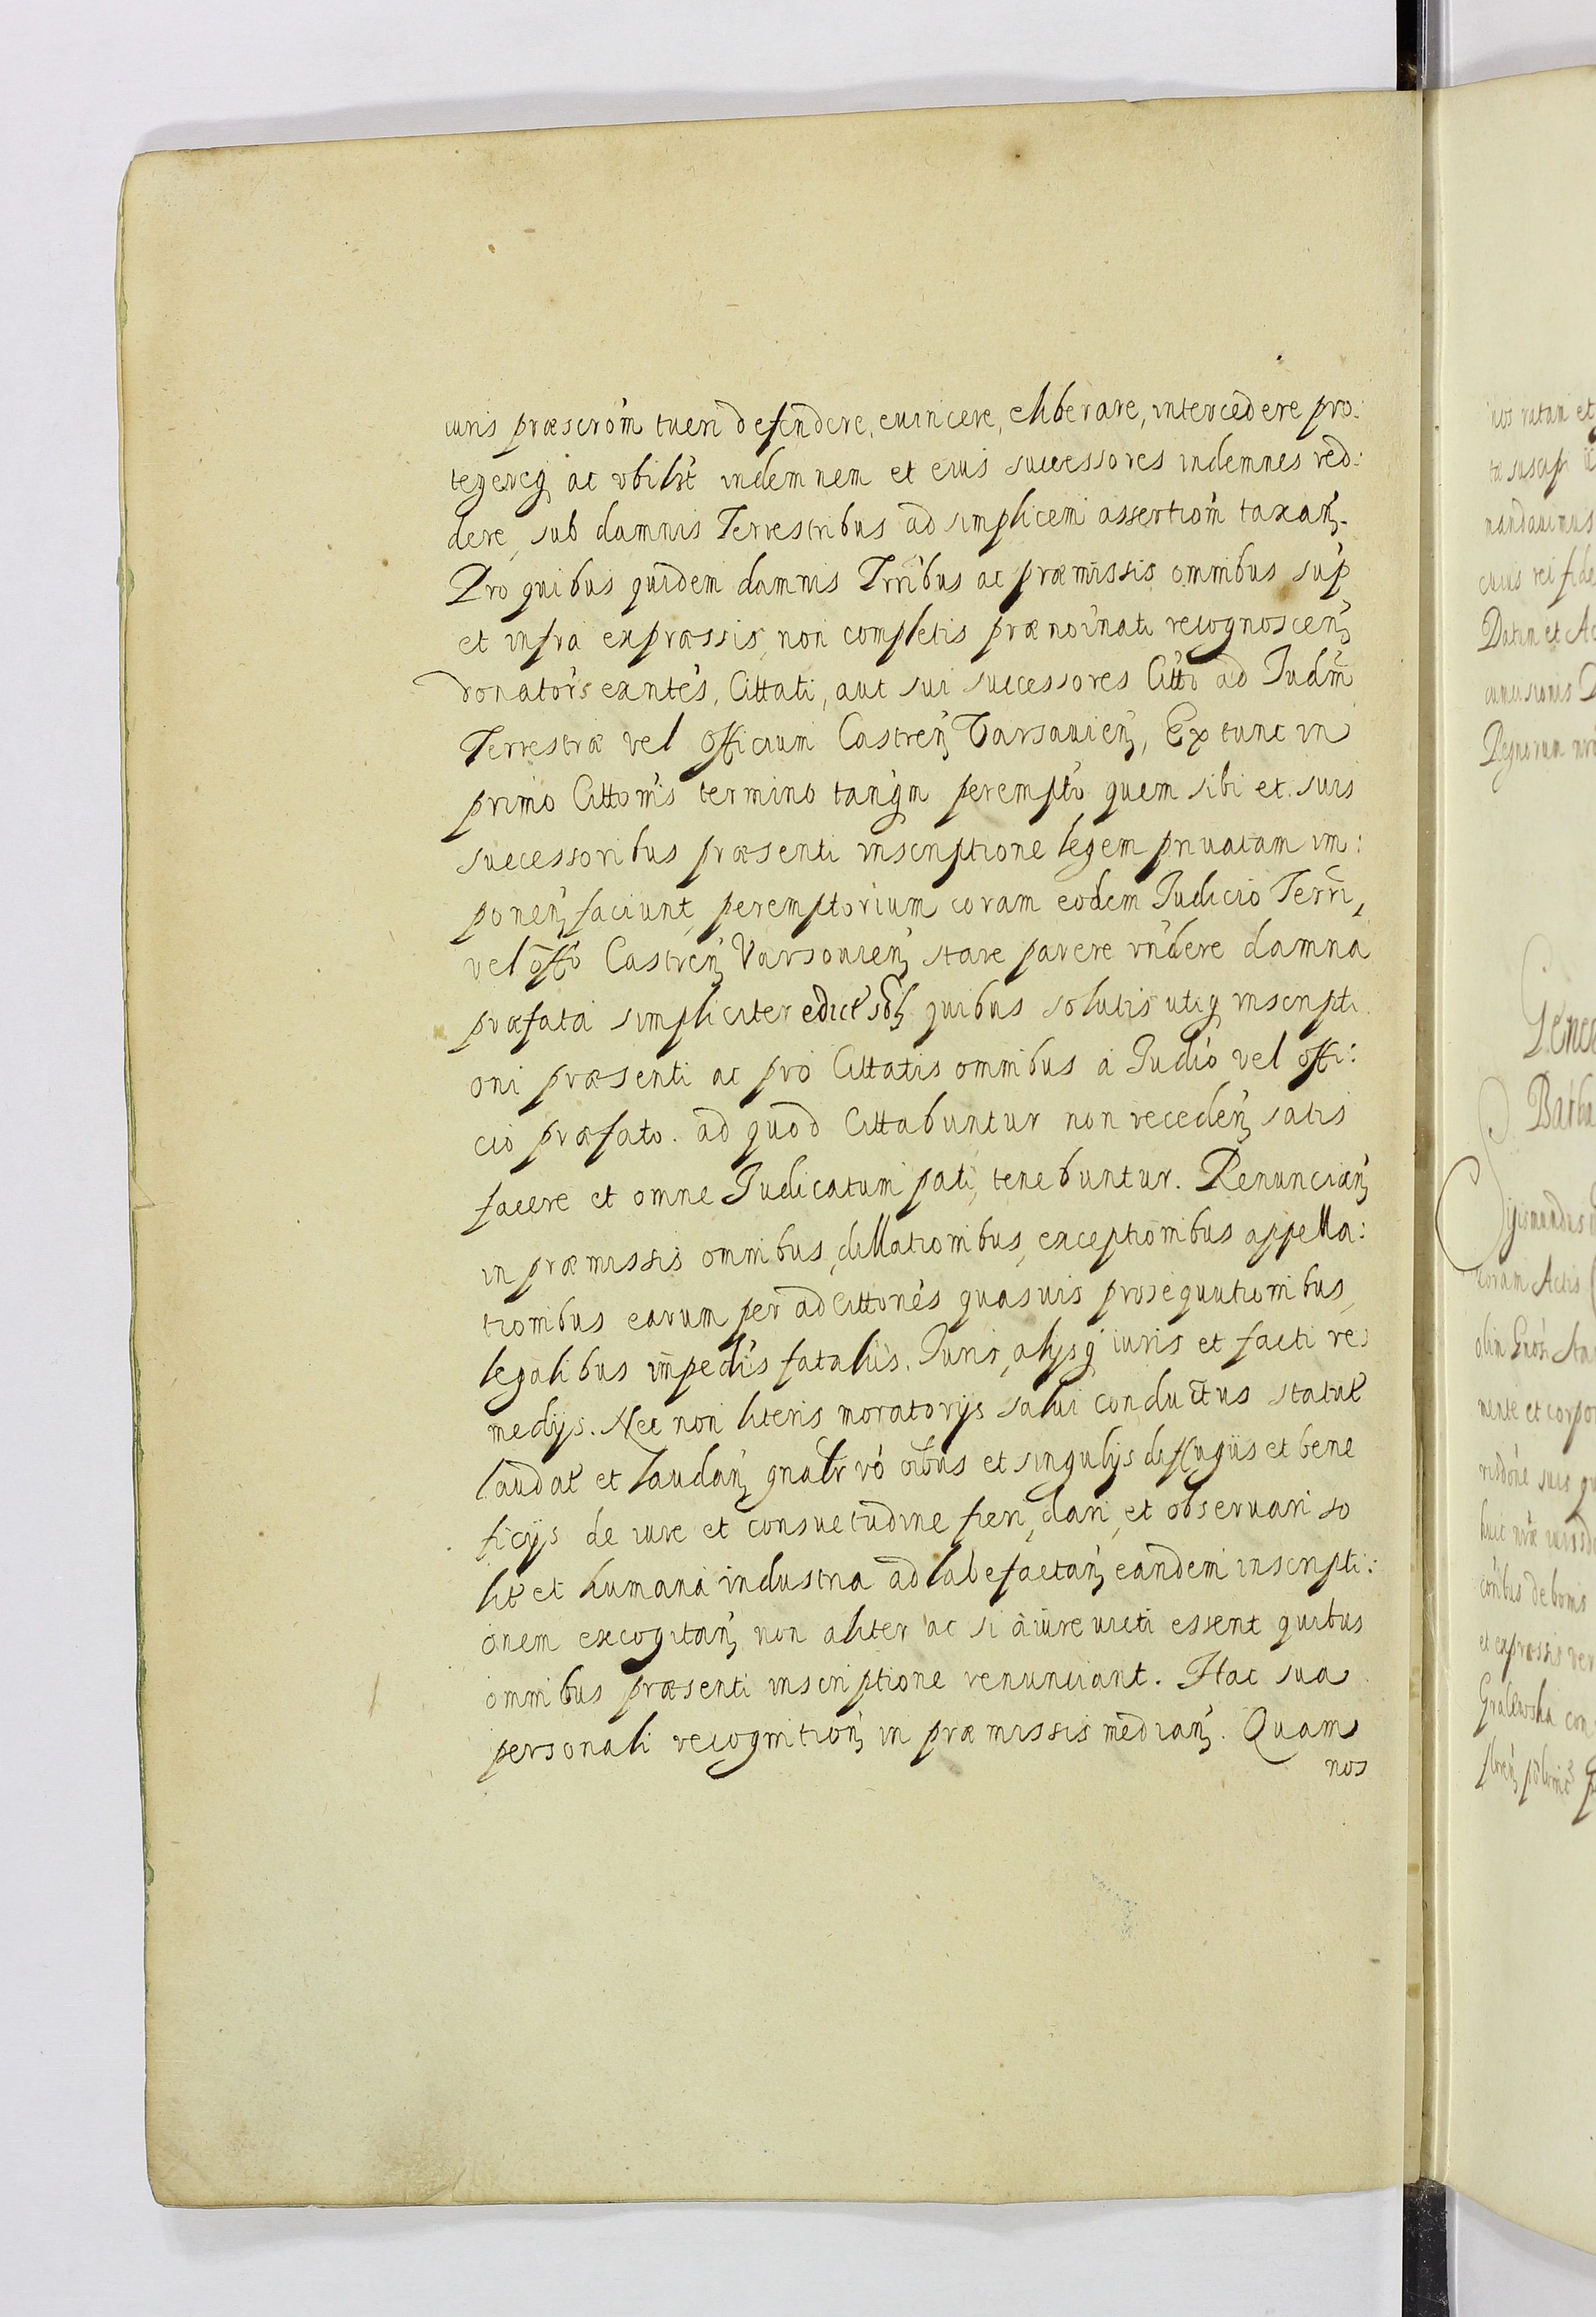 iuris præscrõm tueri defendere, euincere, eliberare, intercedere pro:
tegereq ac vbilt indemnem et eius successores indemnes red:
dere, sub damnis Terrestribus ad simplicem assertiom taxan.
Pro quibus quidem damnis Trribus ac præmissis omnibus sup
et infra expræssis, non completis prænoinati recognoscen
donators exntes, Cittati, aut sui successores Citto ad Judm
Terrestræ vel officium Castren Varsauien, Ex tunc in
primo Cittonis termino tanqm perempto, quem sibi et suis
successoribus præsenti inscriptione legem priuatam im:
ponen, faciunt, peremptorium coram eodem Judicio Terri,
vel offo Castren Varsouien stare parere rndere damna
præfata simpliciter edict quibus solutis utiq inscripti
oni præsenti ac pro Cittatis omnibus a Judio vel offi:
cio præfato. ad quod Cittabuntur non receden satis
facere et omne Judicatum pati, tenebuntur. Renuncian
in præmissis omnibus, dillationibus, exceptionibus appella:
tionibus earum per adcittones quasuis prosequutionibus,
legalibus impedis fataliis. Juris, alysq iuris et facti re
medijs. Nec non literis moratorijs salui conductus statut
laudat et laudan gnalr vó oibus et singulijs diffugiis et bene
ficijs de iure et consuetudine fieri, dari, et obseruari so
lit et humana industria ad labefactan eandem inscripti:
onem excogitan, non aliter ac si à iure uicti essent quibus
omnibus præsenti inscriptione renunciant. Hac sua
personali recognition in præmissis median. Quam
nos
ios ratam et
tæ suscepi
mandauimus
cuius rei fide
Datum et Ac
Regnorum nro
Barba
Coram Actis
olim Grosi Sta
mente et corpo
risdone suis qu
et expræssis ver
Gralewska con